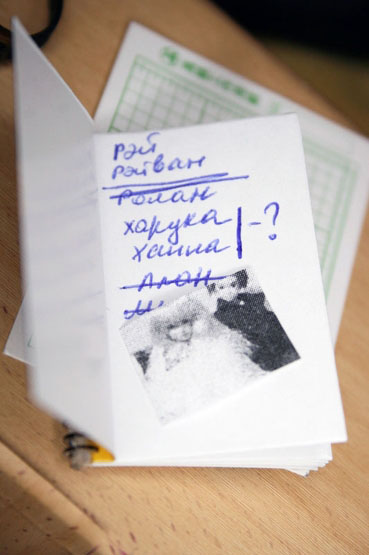 Рэй
Рэйван
Ролан
Харука
Ханна
-?
Алан